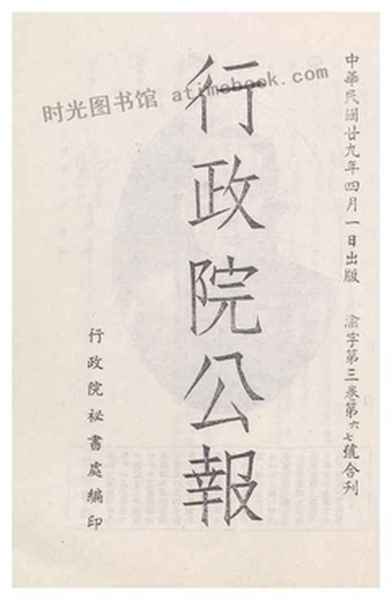 中華民國廿九年四月一日出版 渝字第三卷第六七號合刊
行政院公報
行政院祕書處編印
时光图书馆 atimebook.com